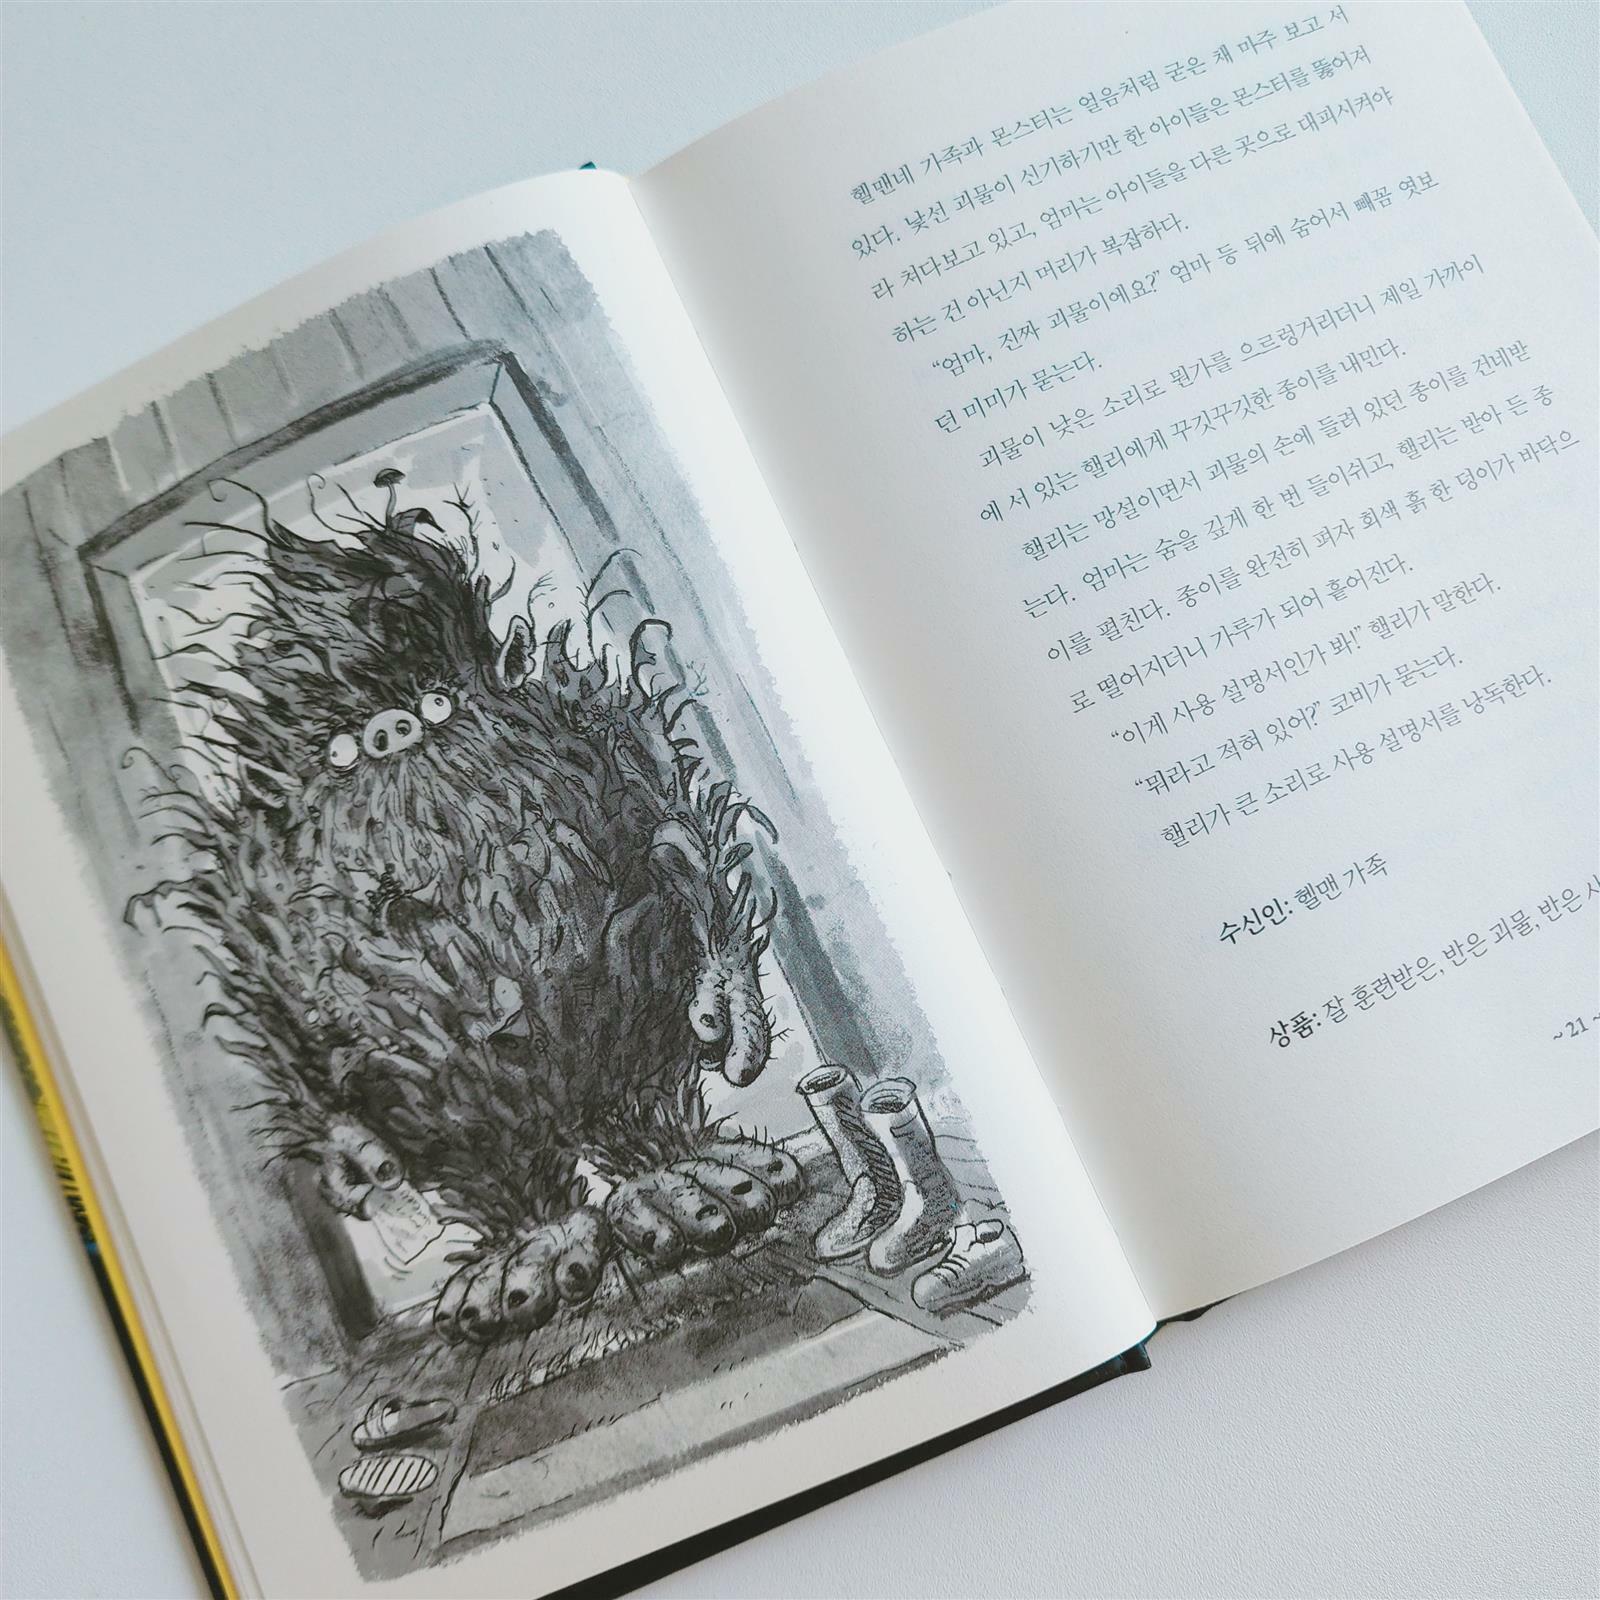 헬맨네 가족과 몬스터는 얼음처럼 굳은 채 마주 보고 서
있다. 낯선 괴물이 신기하기만 한 아이들은 몬스터를 뚫어져
라 쳐다보고 있고, 엄마는 아이들을 다른 곳으로 대피시켜야
하는 건 아닌지 머리가 복잡하다.
“엄마, 진짜 괴물이에요?” 엄마 등 뒤에 숨어서 빼꼼 엿보
던 미미가 묻는다.
괴물이 낮은 소리로 뭔가를 으르렁거리더니 제일 가까이
에 서 있는 핼리에게 꾸깃꾸깃한 종이를 내민다.
핼리는 망설이면서 괴물의 손에 들려 있던 종이를 건네받
는다. 엄마는 숨을 깊게 한 번 들이쉬고, 핼리는 받아 든 종
이를 펼친다. 종이를 완전히 펴자 회색 흙 한 덩이가 바닥으
로 떨어지더니 가루가 되어 흩어진다.
“이게 사용 설명서인가 봐!” 핼리가 말한다.
“뭐라고 적혀 있어?” 코비가 묻는다.
핼리가 큰 소리로 사용 설명서를 낭독한다.
수신인: 헬맨 가족
상품: 잘 훈련받은, 반은 괴물, 반은
~ 21 ~